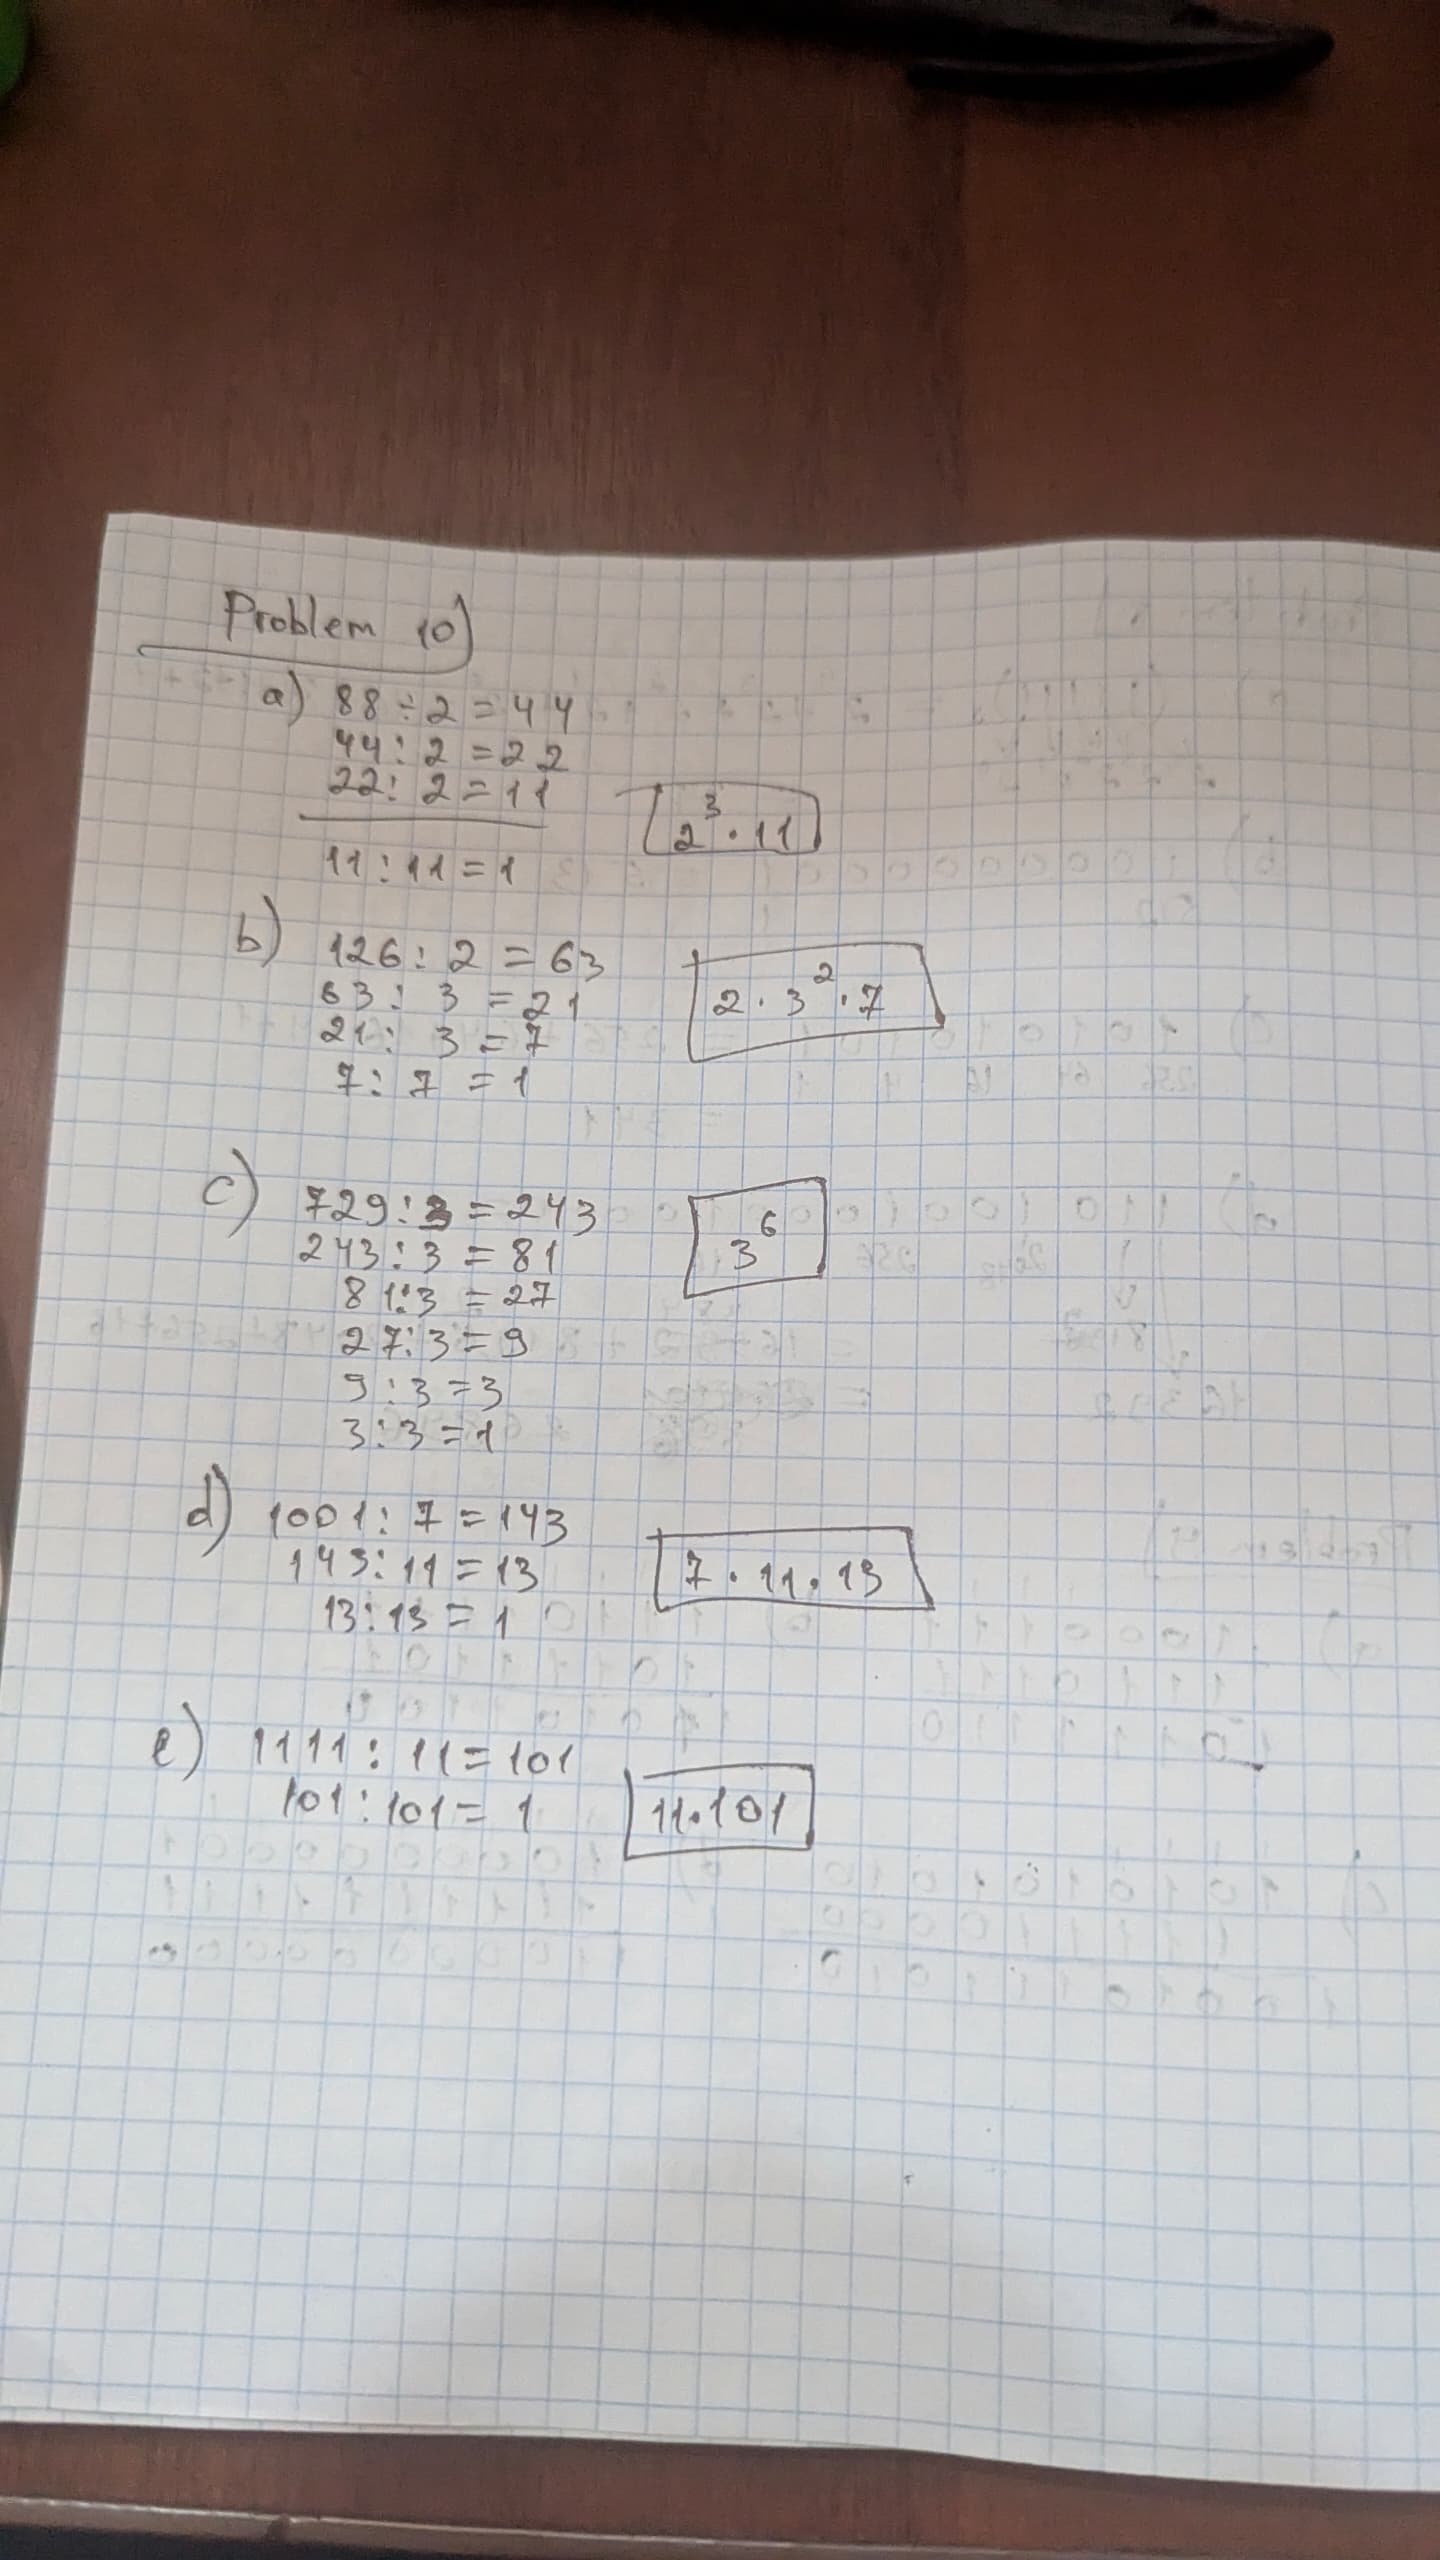 Problem 10)
a) 88 ÷ 2 = 44
44 : 2 = 22
22 : 2 = 11
2³ · 11
11 : 11 = 1
b) 126 : 2 = 63
63 : 3 = 21
2 · 3² · 7
21 : 3 = 7
7 : 7 = 1
c) 729 : 3 = 243
243 : 3 = 81
3⁶
81 : 3 = 27
27 : 3 = 9
9 : 3 = 3
3 : 3 = 1
d) 1001 : 7 = 143
143 : 11 = 13
7 · 11 · 13
13 : 13 = 1
e) 1111 : 11 = 101
101 : 101 = 1
11 · 101